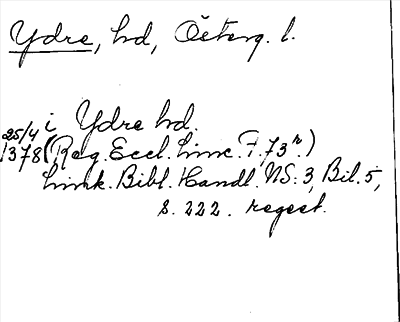 Ydre, hd, Österg. l.
i Ydre hd.
25/4 1378 (Reg. Eccl. Linc. F, 73r.)
Link. Bibl. Handl. NS. 3, Bil. 5,
s. 222. regest.